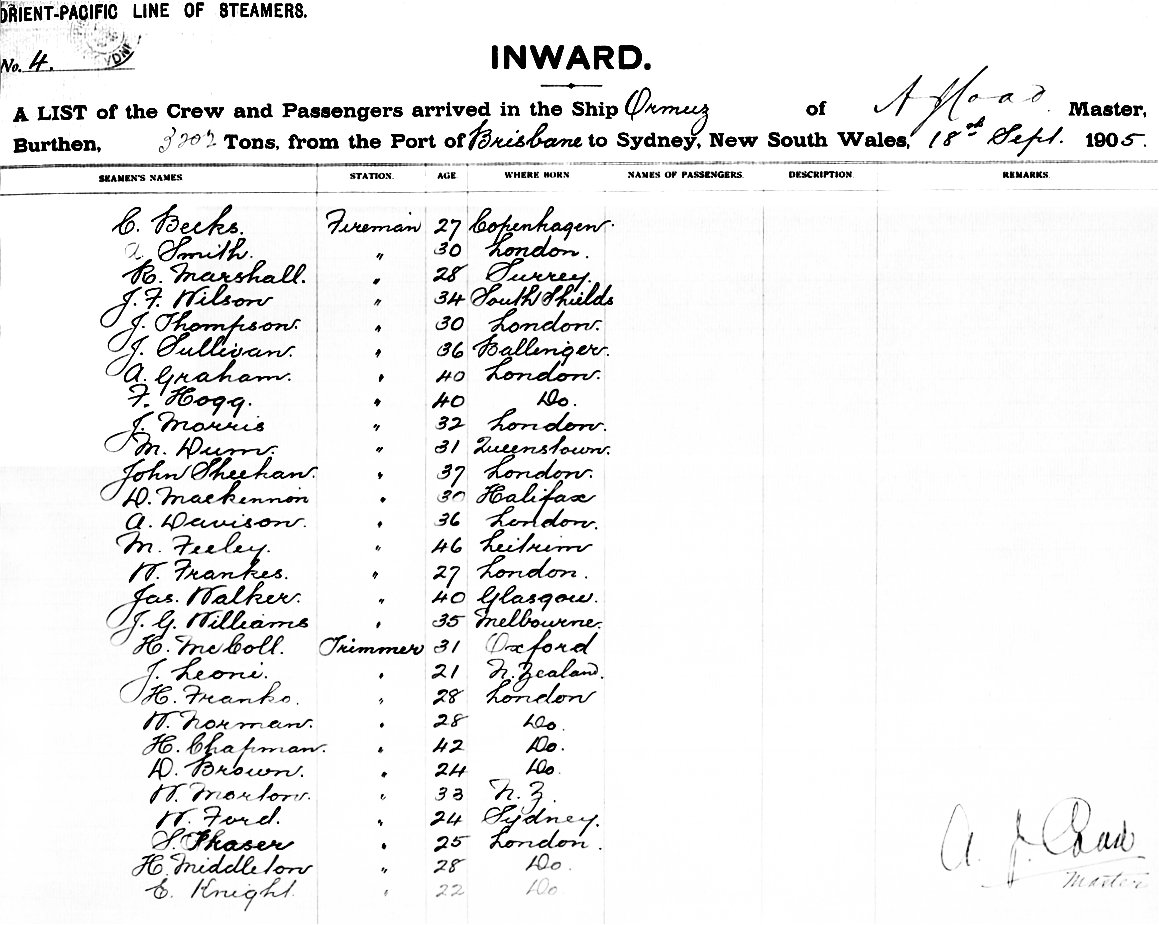 ORIENT-PACIFIC LINE OF STEAMERS.
No. 4.
INWARD.
A LIST of the Crew and Passengers arrived in the Ship Ormuz of A J Coad Master,
Burthen, 3202 Tons, from the Port of Brisbane to Sydney, New South Wales, 18th Sept. 1905.
SEAMEN'S NAMES STATION. AGE WHERE BORN NAMES OF PASSENGERS. DESCRIPTION REMARKS
C. Becks. Fireman 27 Copenhagen.
Smith. " 30 London.
R. Marshall. " 28 Surrey.
J. F. Wilson " 34 South Shields
J. Thompson. " 30 London.
J. Sullivan. " 36 Ballenger.
A. Graham. " 40 London.
F. Hogg. " 40 Do.
J. Morris " 32 London.
M. Dunn. " 31 Queenstown.
John Sheehan. " 37 London.
D. Mackennon " 30 Halifax
A. Davison. " 36 London.
M. Feeley. " 46 Leitrim
W. Frankes. " 27 London.
Jas. Walker. " 40 Glasgow.
J. G. Williams " 35 Melbourne.
H. McColl. Trimmer 31 Oxford
J. Leoni. " 21 N. Zealand.
H. Franks. " 28 London
W. Norman. " 28 Do.
H. Chapman. " 42 Do.
D. Brown. " 24 Do.
W. Morton. " 33 N. Z.
W. Ford. " 24 Sydney.
S. Phaser " 25 London.
H. Middleton " 28 Do.
E. Knight. " 22 Do
A. J. Coad
Master